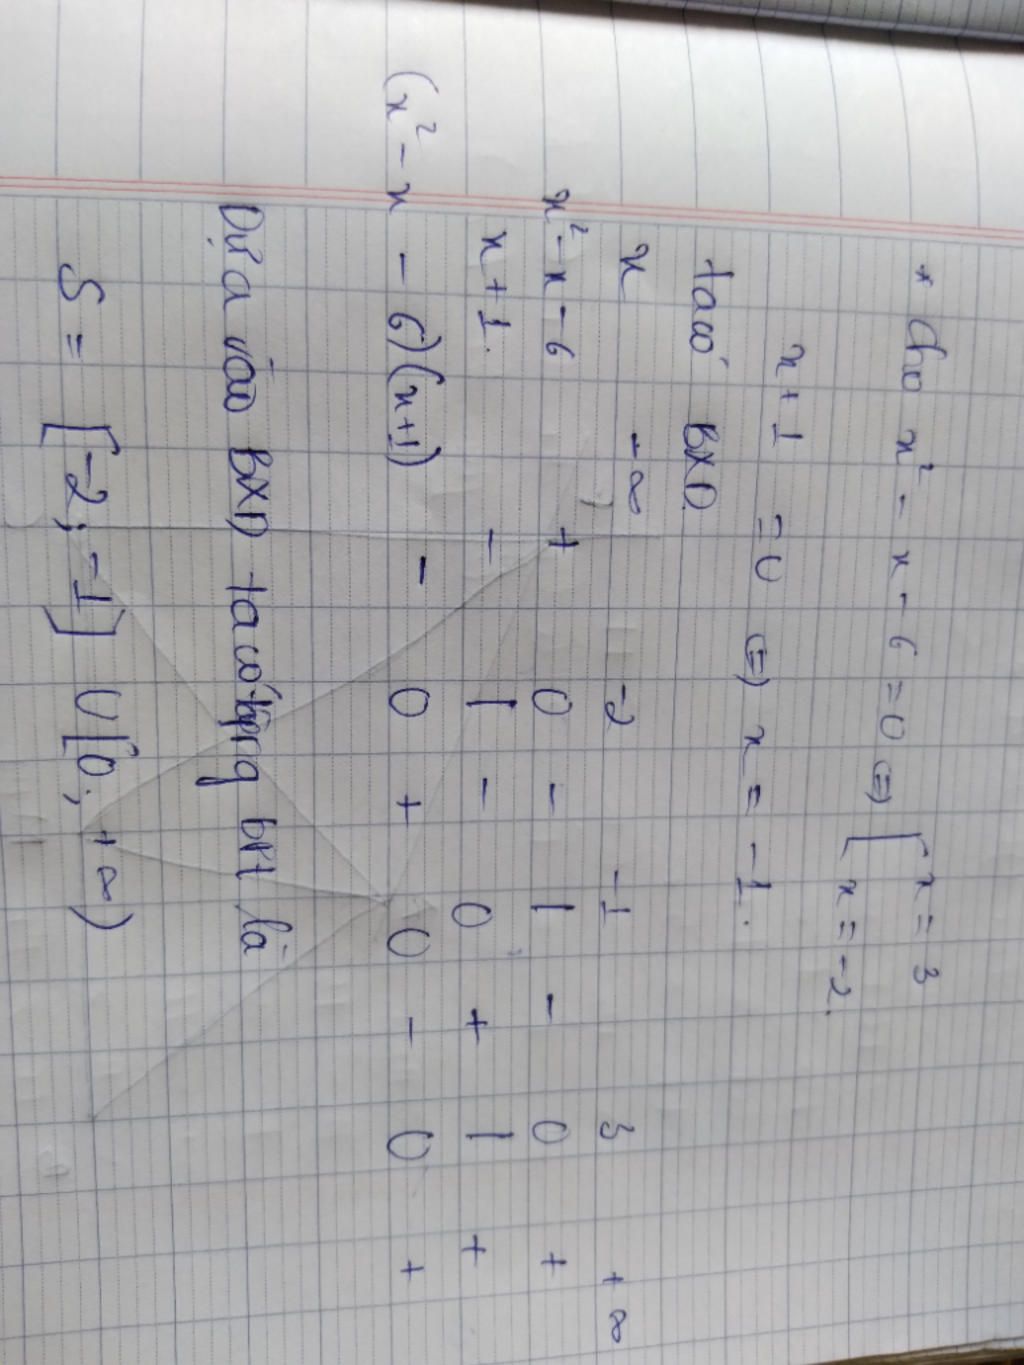 * Cho x² - x - 6 = 0 (=) [ x = 3
x = -2.
x + 1 = 0 (=) x = -1.
ta có BXD
x -∞ -2 -1 3 +∞
x² - x - 6 + 0 - | - 0 +
x + 1. - | - 0 + | +
(x² - x - 6)(x+1) - 0 + 0 - 0 +
Dựa vào BXD ta có là
S = [-2; -1] U [0; +∞)